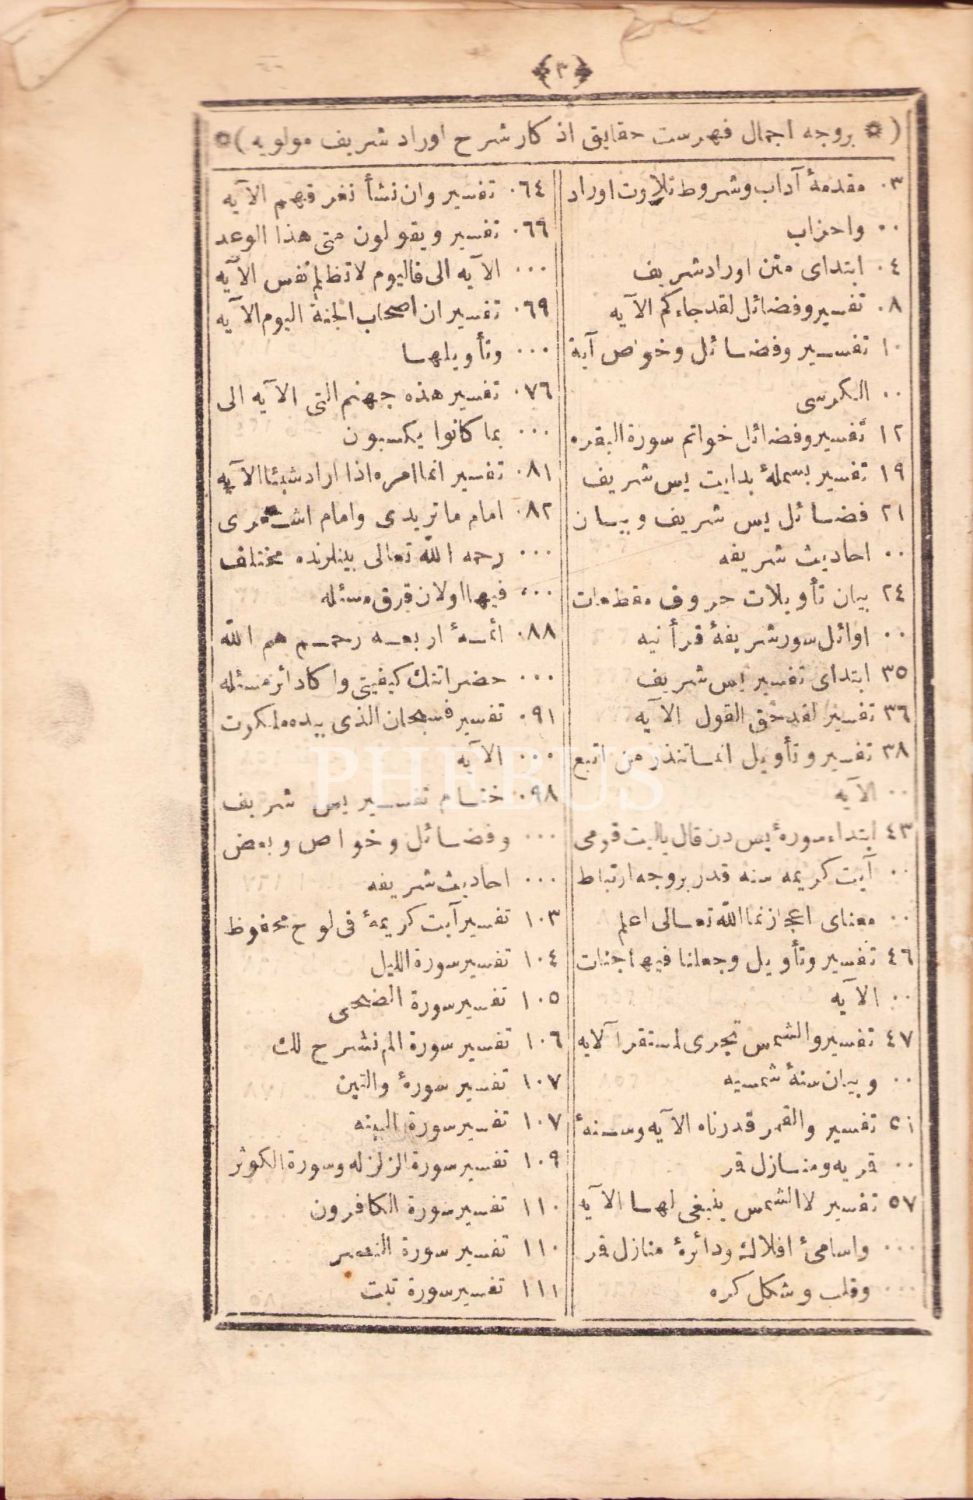 ﴿٢﴾
(❁ بروجه اجمال فهرست حقايق اذكار شرح اوراد شريف مولويه ❁)
٠٣ مقدمهٔ آداب وشروط تلاوت اوراد
٠٠ واحزاب
٠٤ ابتداى متن اوراد شريف
٠٨ تفسير وفضائل لقد جاءكم الآيه
١٠ تفسير وفضائل وخواص آية
٠٠ الكرسى
١٢ تفسير وفضائل خواتم سورة البقره
١٩ تفسير بسملهٔ بدايت يس شريف
٢١ فضائل يس شريف وبيان
٠٠ احاديث شريفه
٢٤ بيان تأويلات حروف مقطعات
٠٠ اوائل سور شريفهٔ قرأنيه
٣٥ ابتداى تفسير يس شريف
٣٦ تفسير لقد حق القول الآيه
٣٨ تفسير وتأويل انما تنذر من اتبع
٠٠ الآيه
٤٣ ابتداء سورهٔ يس دن قال ياليت قومى
٠٠ آيت كريمه سنه قدر بروجه ارتباط
٠٠ معناى اعجازنما الله تعالى اعلم
٤٦ تفسير وتأويل وجعلنا فيها جنات
٠٠ الآيه
٤٧ تفسير والشمس تجرى لمستقر الآيه
٠٠ وبيان سنهٔ شمسيه
٥١ تفسير والقمر قدرناه الآيه وسنهٔ
٠٠ قمريه ومنازل قمر
٥٧ تفسير لا الشمس ينبغى لها الآيه
٠٠٠ واسامئ افلاك ودائرهٔ منازل قمر
٠٠٠ وقلب وشكل كره
٠٦٤ تفسير وان نشأ نغرقهم الآيه
٠٦٦ تفسير ويقولون متى هذا الوعد
٠٠٠ الآيه الى فاليوم لا تظلم نفس الآيه
٠٦٩ تفسير ان اصحاب الجنة اليوم الآيه
٠٠٠ وتأويلها
٠٧٦ تفسير هذه جهنم التى الآيه الى
٠٠٠ بما كانوا يكسبون
٠٨١ تفسير انما امره اذا اراد شيئا الآيه
٠٨٢ امام ماتريدى وامام اشعرى
٠٠٠ رحمه الله تعالى بينلرنده مختلف
٠٠٠ فيها اولان قرق مسئله
٠٨٨ ائمهٔ اربعه رحمهم الله
٠٠٠ حضراتنك كيفيتى واكا دائر مسئله
٠٩١ تفسير فسبحان الذى بيده ملكوت
٠٠٠ الآيه
٠٩٨ ختام تفسير يس شريف
٠٠٠ وفضائل وخواص وبعض
٠٠٠ احاديث شريفه
١٠٣ تفسير آيت كريمهٔ فى لوح محفوظ
١٠٤ تفسير سورة الليل
١٠٥ تفسير سورة الضحى
١٠٦ تفسير سورة الم نشرح لك
١٠٧ تفسير سورهٔ والتين
١٠٧ تفسير سورة البينه
١٠٩ تفسير سورة الزلزله وسورة الكوثر
١١٠ تفسير سورة الكافرون
١١٠ تفسير سورة النصر
١١١ تفسير سورة تبت
PHEBUS